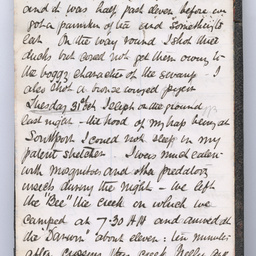 and it was half past eleven before we
got a pannikin of tea and something to
eat On the way round I shot three
ducks but could not get them owing to
the boggy character of the swamp - I
also shot a bronze winged pigeon
Tuesday 31st Oct I slept on the ground
last night - the hood of my hap being at
Southport I could not sleep in my
patent stretcher - I was much eaten
with mosquitoes and other predatory
insects during the night - we left
the "Bee" the creek on which we
camped at 7-30 AM and arrived at
the "Darwin" about eleven: ten minutes
after crossing this creek